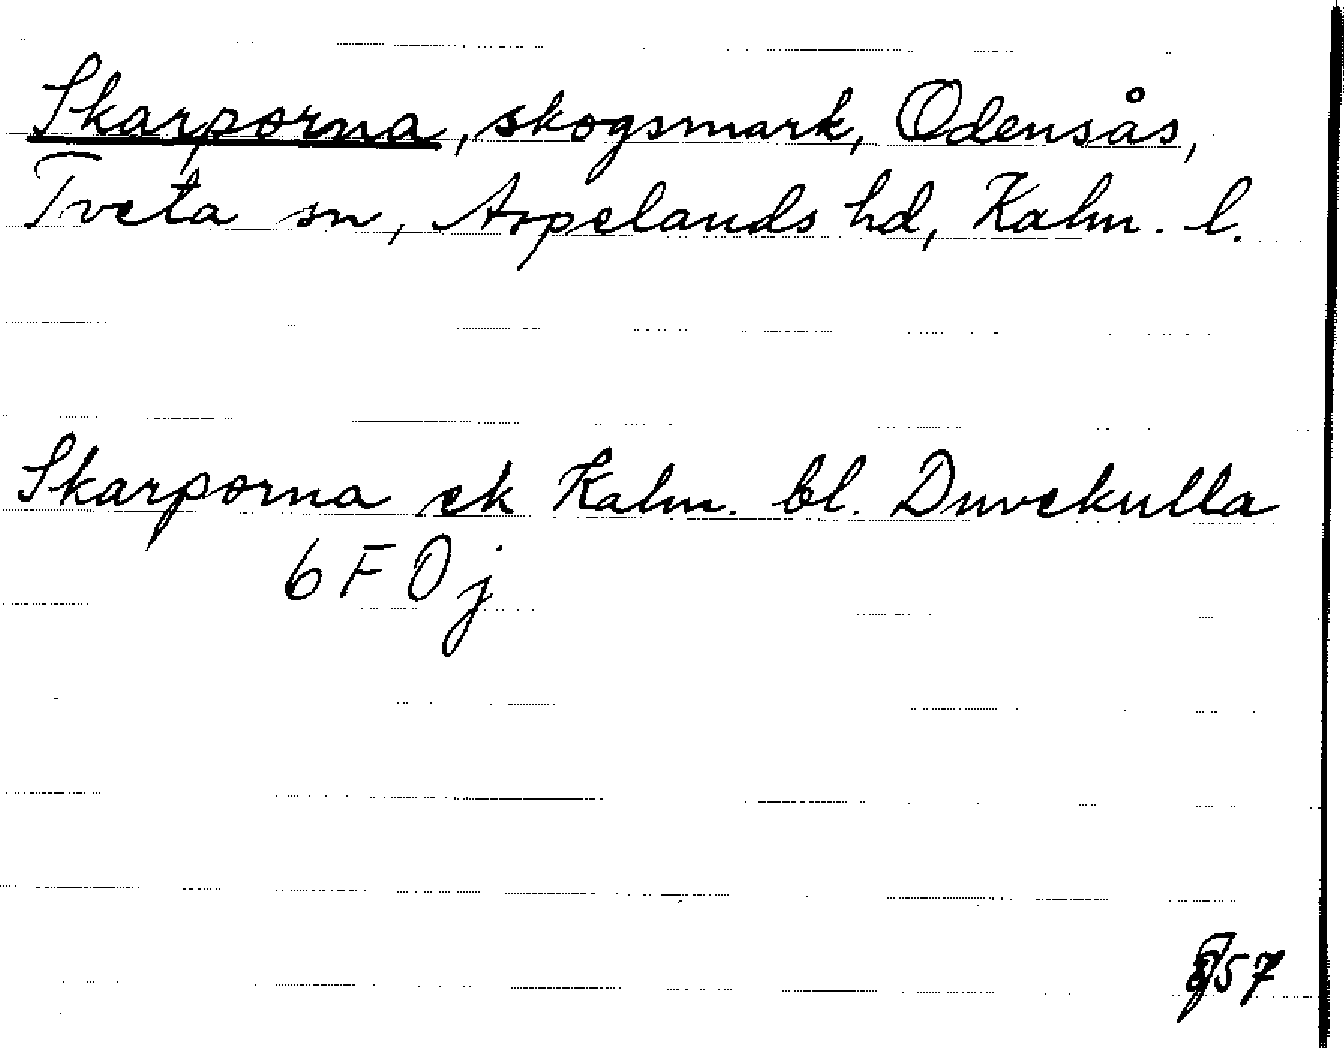 Skarporna, skogsmark, Odensås,
Tveta sn, Aspelands hd, Kalm. l.
Skarporna ek Kalm. bl. Duvekulla
6 F 0 j
57